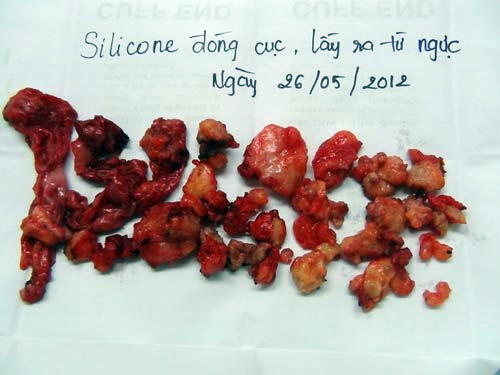 CUFF END CUFF END
Silicone đóng cục, lấy ra từ ngực
Ngày 26/05/2012